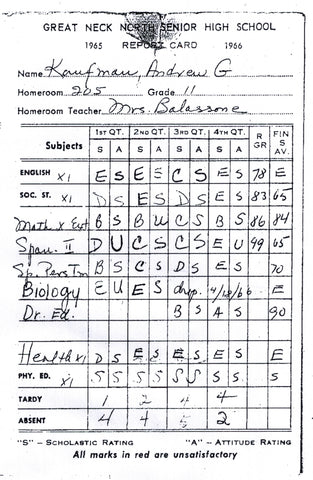 GREAT NECK NORTH SENIOR HIGH SCHOOL
1965 REPORT CARD 1966
Name Kaufman, Andrew G
Homeroom 205 Grade 11
Homeroom Teacher Mrs. Balassone
Subjects 1ST QT. 2ND QT. 3RD QT. 4TH QT. R GR FIN S AV.
S A S A S A S A
ENGLISH XI E S E E C S E S 78 E
SOC. ST. XI D S E S D S E S 83 65
Math X Ext B S B U C S B S 86 84
Span. II D U C S C S E U 99 65
Sp. Pers Im B S C S D S E S 70
Biology E U E S drop. 4/18/66 E
Dr. Ed. B S A S 90
Health XI D S E S E S E S E
PHY. ED. XI S S S S S S S S S
TARDY 1 2 4 4
ABSENT 4 4 5 2
"S" – SCHOLASTIC RATING "A" – ATTITUDE RATING
All marks in red are unsatisfactory